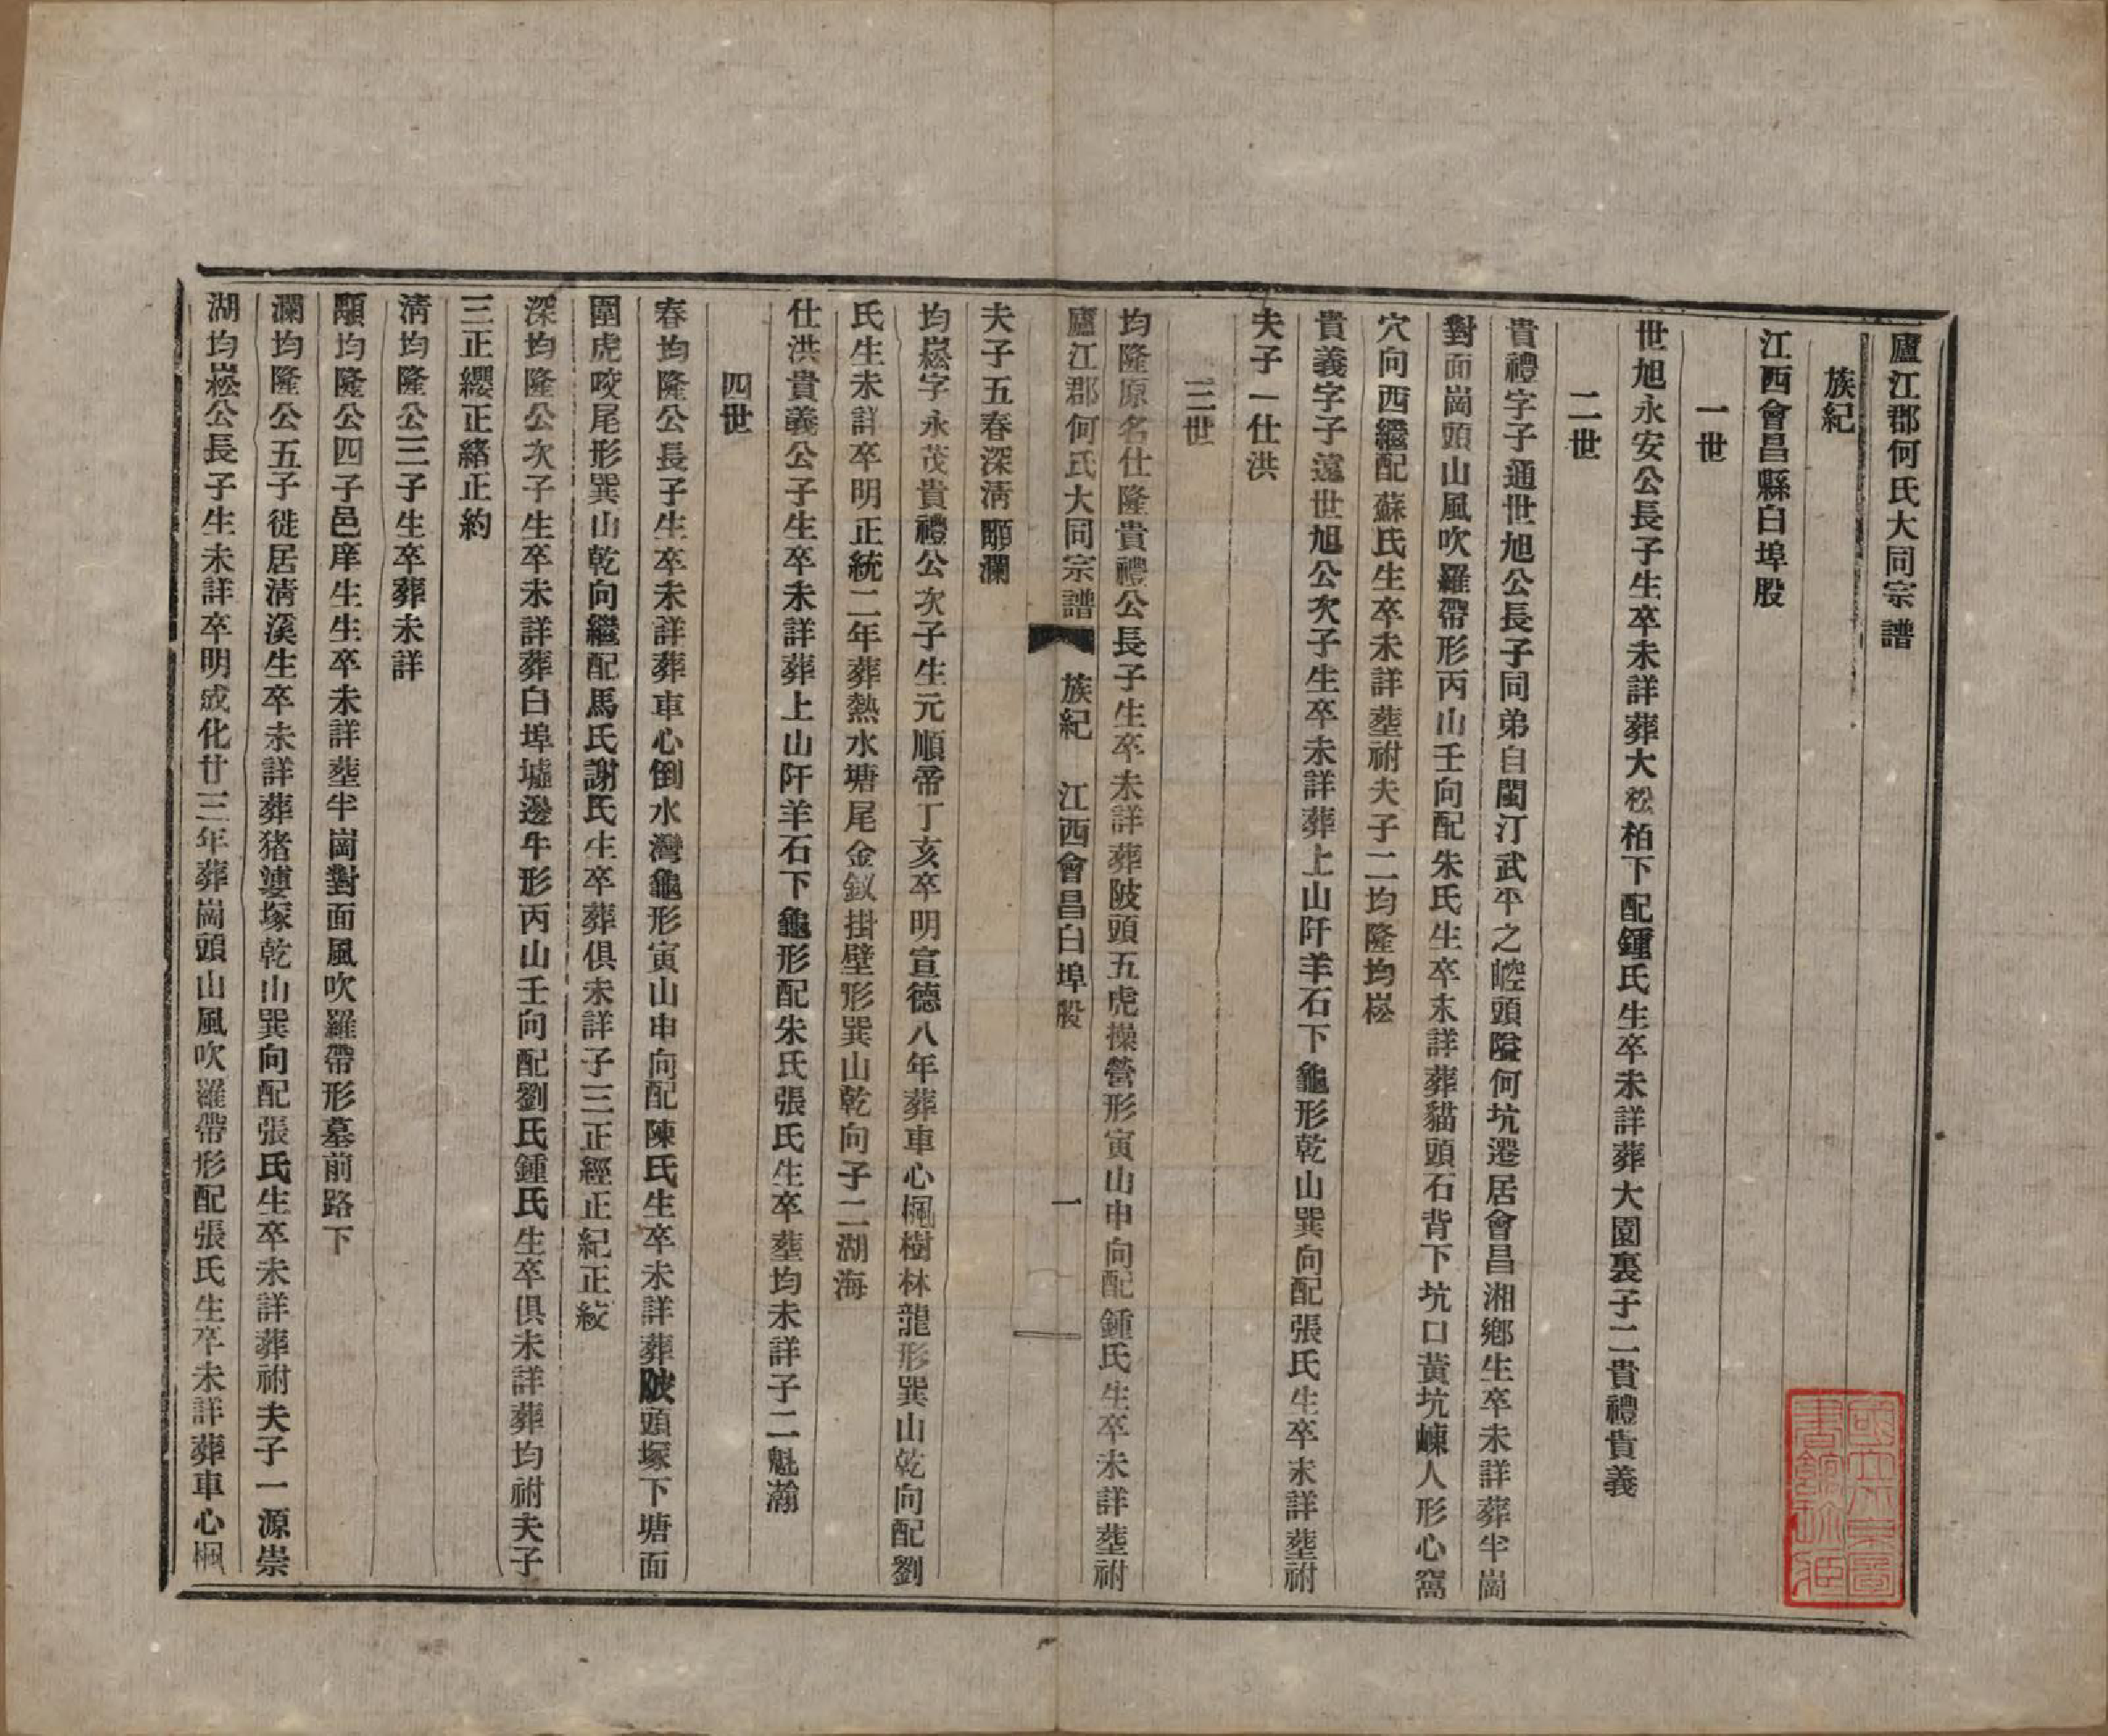 廬江郡何氏大同宗譜
族紀
江西會昌縣白埠股
一世
世旭永安公長子生卒未詳葬大松柏下配鍾氏生卒未詳葬大園裏子二貴禮貴義
二世
貴禮字子通世旭公長子同弟自閩汀武平之崆頭隘何坑遷居會昌湘鄉生卒未詳葬半崗
對面崗頭山風吹羅帶形丙山壬向配朱氏生卒未詳葬貓頭石背下坑口黃坑崠人形心窩
穴向西繼配蘇氏生卒未詳塟祔夫子二均隆均崧
貴義字子遠世旭公次子生卒未詳葬上山阡羊石下龜形乾山巽向配張氏生卒未詳塟祔
夫子一仕洪
三世
均隆原名仕隆貴禮公長子生卒未詳葬陂頭五虎操營形寅山申向配鍾氏生卒未詳塟祔
廬江郡何氏大同宗譜 族紀 江西會昌白埠股 一
夫子五春深清顒瀾
均崧字永茂貴禮公次子生元順帝丁亥卒明宣德八年葬車心楓樹林龍形巽山乾向配劉
氏生未詳卒明正統二年葬熱水塘尾金釵掛壁形巽山乾向子二湖海
仕洪貴義公子生卒未詳葬上山阡羊石下龜形配朱氏張氏生卒塟均未詳子二魁瀚
四世
春均隆公長子生卒未詳葬車心倒水灣龜形寅山申向配陳氏生卒未詳葬陂頭塚下塘面
圍虎咬尾形巽山乾向繼配馬氏謝氏生卒葬俱未詳子三正經正紀正紋
深均隆公次子生卒未詳葬白埠墟邊牛形丙山壬向配劉氏鍾氏生卒俱未詳葬均祔夫子
三正纓正綹正約
清均隆公三子生卒葬未詳
顒均隆公四子邑庠生生卒未詳塟半崗對面風吹羅帶形墓前路下
瀾均隆公五子徙居清溪生卒未詳葬猪婆塚乾山巽向配張氏生卒未詳葬祔夫子一源崇
湖均崧公長子生未詳卒明成化廿三年葬崗頭山風吹羅帶形配張氏生卒未詳葬車心楓
國立北京圖書館珍藏